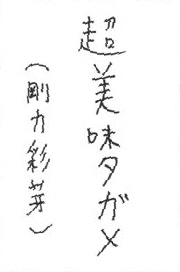 超美味タガメ
（剛力彩芽）